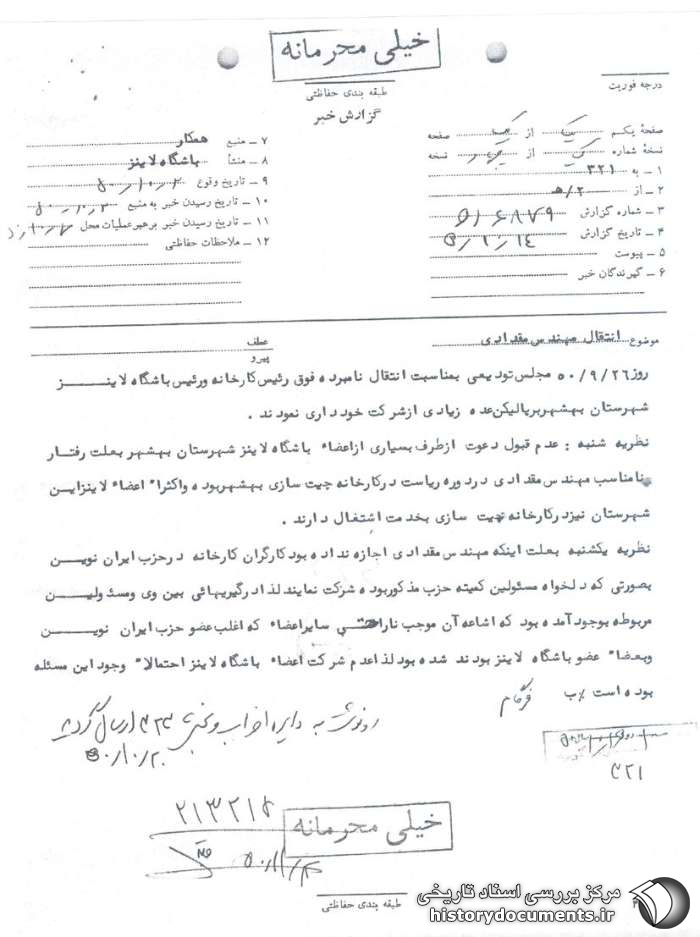 خیلی محرمانه
طبقه بندی حفاظتی
گزارش خبر
درجه فوریت
صفحهٔ یکم یک از یک صفحه
نسخهٔ شماره یک از نسخه
۱ ــ به ۳۲۱
۲ ــ از ۲/ﻫ
۳ ــ شماره گزارش ۵۱۶۸۷۹
۴ ــ تاریخ گزارش ۵۰/۱۰/۱۴
۵ ــ پیوست
۶ ــ گیرندگان خبر
۷ ــ منبع همکار
۸ ــ منشأ باشگاه لاینز
۹ ــ تاریخ وقوع
۱۰ ــ تاریخ رسیدن خبر به منبع
۱۱ ــ تاریخ رسیدن خبر برهبر عملیات محل
۱۲ ــ ملاحظات حفاظتی
موضوع انتقال مهندس مقدادی
عطف
پیرو
روز ۵۰/۹/۲۶ مجلس تودیعی بمناسبت انتقال نامبرده فوق رئیس کارخانه ورئیس باشگاه لاینز
شهرستان بهشهر برپا لیکن عده زیادی ازشرکت خود داری نمودند .
نظریه شنبه : عدم قبول دعوت ازطرف بسیاری ازاعضاء باشگاه لاینز شهرستان بهشهر بعلت رفتار
نامناسب مهندس مقدادی در دوره ریاست درکارخانه چیت سازی بهشهر بوده واکثرا" اعضاء لاینز این
شهرستان نیز درکارخانه چیت سازی بخدمت اشتغال دارند .
نظریه یکشنبه بعلت اینکه مهندس مقدادی اجازه نداده بود کارگران کارخانه درحزب ایران نوین
بصورتی که دلخواه مسئولین کمیته حزب مذکور بود شرکت نمایند لذا درگیریهائی بین وی ومسئولین
مربوطه بوجود آمده بود که اشاعه آن موجب ناراحتی سایر اعضاء که اغلب عضو حزب ایران نوین
وبعضا" عضو باشگاه لاینز بودند شده بود لذا عدم شرکت اعضاء باشگاه لاینز احتمالا" وجود این مسئله
بوده است ب
فرگام
رونوشت به دایره احزاب و ارسال گردید
۵۰/۱۰/۲۰
۳۲۱
۲۱۳۲۱۵
خیلی محرمانه
طبقه بندی حفاظتی
مرکز بررسی اسناد تاریخی
historydocuments.ir